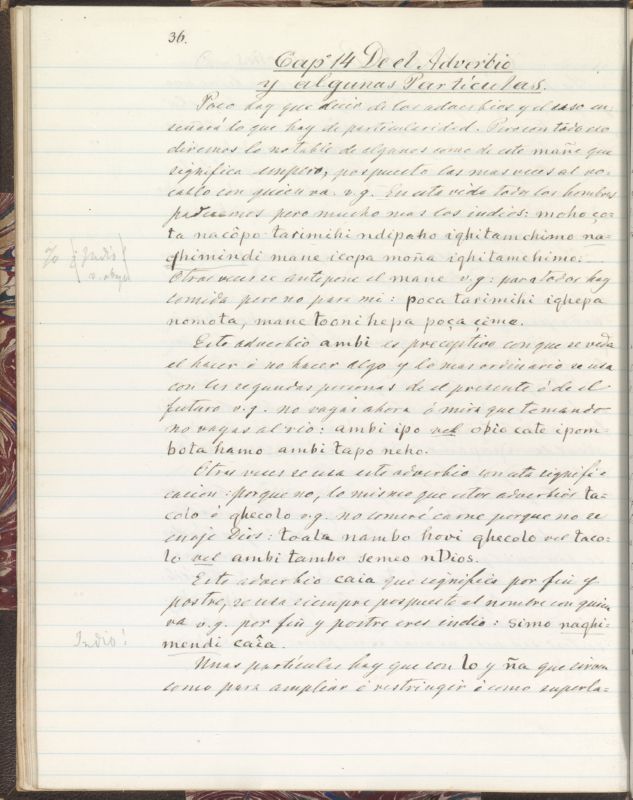 36.
Capº 14 De el Adverbio
y algunas Particulas.
Poco hay que decir de los adverbios y el caso en-
señará lo que hay de particularidad. Pero con todo eso
diremos lo notable de algunos como de este mañe que
significa empero, pospuesto las mas veces al vo-
cablo con quien va. v.g. En esta vida todos los hombres
padecemos pero mucho mas los indios: moho ço-
ta nacôpo tarimihi ndipaho ighitamchimo na-
qhimindi mane icopa moña ighitamehimo:
Otras veces se antepone el mane v.g: para todos hay
comida pero no para mi: poca tarimihi ighepa
nomota, mane tooni hepa poça cimo.
Este adverbio ambi es preceptivo con que se veda
el hacer ó no hacer algo y lo mas ordinario se usa
con las segundas personas de el presente ó de el
futuro v.g. no vayas ahora ó mira que te mando
no vayas al rio: ambi ipo vel opio cate ipom-
bota hamo ambi tapo neho.
Otras veces se usa este adverbio con esta signifi-
cacion: porque no, lo mismo que estos adverbios ta-
colo ó qhecolo v.g. no comeré carne porque no se
enoje Dios: toala nambo hovi qhecolo vel taco-
lo vel ambi tambo semeo nDios.
Este adverbio caia que significa por fin y
postre, se usa siempre pospuesto al nombre con quien
va v.g. por fin y postre eres indio: simo naqhi-
mendi caîa.
Unas particulas hay que son lo y ña que sirven
como para ampliar ó restringir ó como superla-
Yo
Indio
Indio!